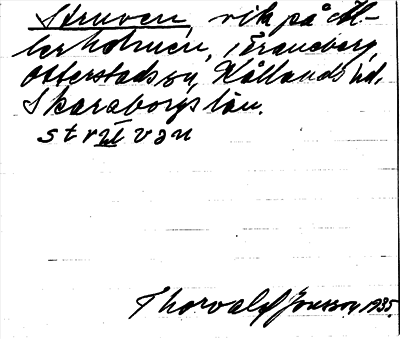 Struven, vik på Al-
lerholmen, i Traneberg,
Otterstads sn, Kållands hd,
Skaraborgs län.
strʉvən
Thorvald Jonsson 1935.